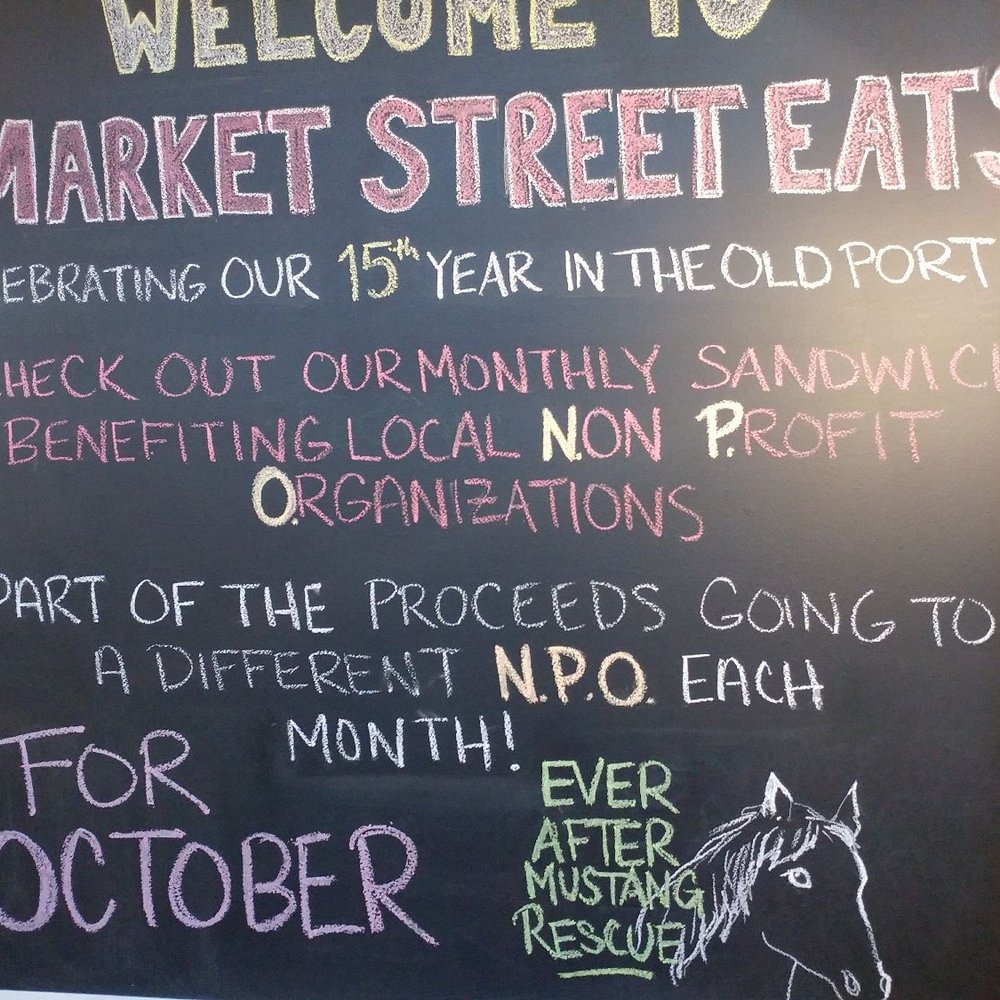 WELCOME TO
MARKET STREET EATS
EBRATING OUR 15th YEAR IN THE OLD PORT
CHECK OUT OUR MONTHLY SANDWICH
BENEFITING LOCAL N.ON P.ROFIT
O.RGANIZATIONS
PART OF THE PROCEEDS GOING TO
A DIFFERENT N.P.O. EACH
MONTH!
FOR
OCTOBER
EVER
AFTER
MUSTANG
RESCUE